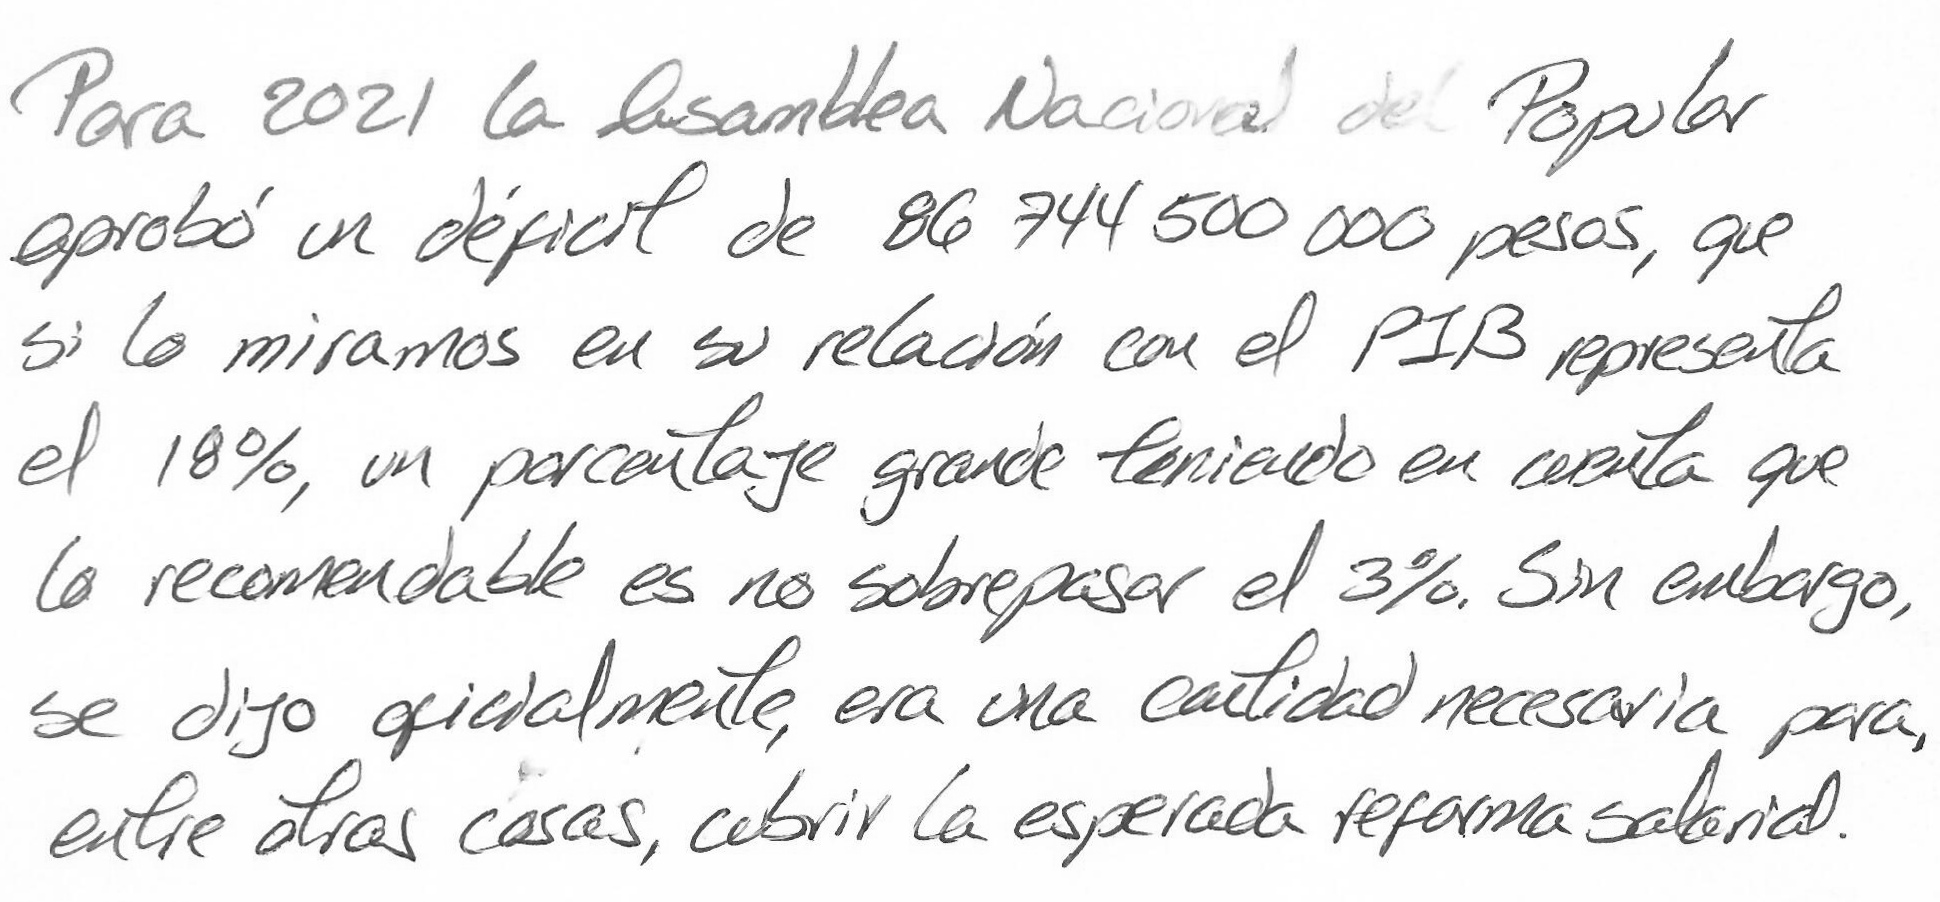 Para 2021 la Asamblea Nacional del Popular
aprobó un déficit de 86 744 500 000 pesos, que
si lo miramos en su relación con el PIB representa
el 18%, un porcentaje grande teniendo en cuenta que
lo recomendable es no sobrepasar el 3%. Sin embargo,
se dijo oficialmente, era una cantidad necesaria para,
entre otras cosas, cubrir la esperada reforma salarial.